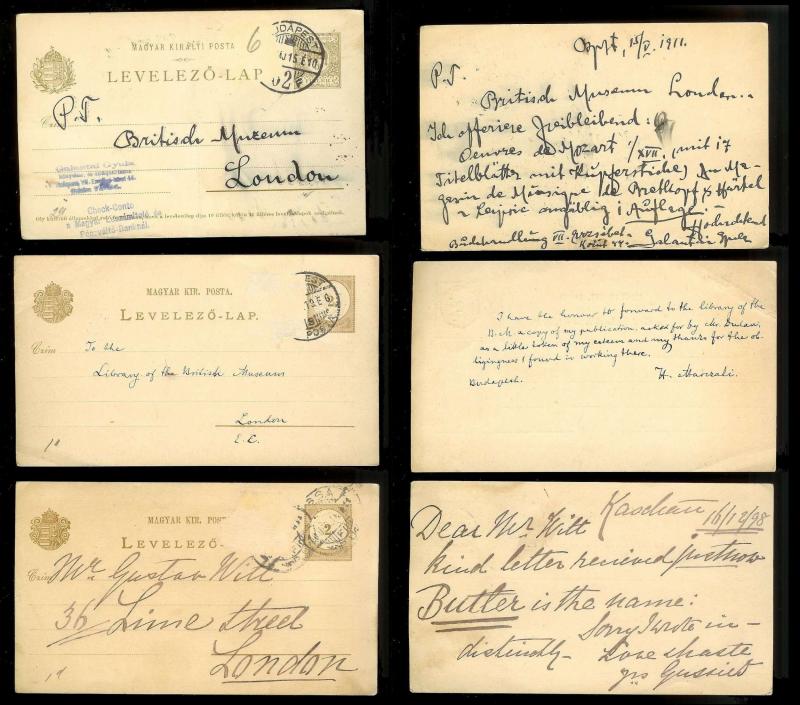 MAGYAR KIRÁLYI POSTA
6
BUDAPEST
LEVELEZŐ-LAP
P.T.
Czím
Britisch Muzeum
London
Galantai Gyula
Check-Conto
a Magyar Leszámitoló és
Pénzváltó-Banknál.
Bpst, 15/V. 1911.
P.T.
Britisch Museum London.
Ich offeriere freibleibend:
Oeuvres de Mozart I/XVII, mit 17
Titelblätter mit Kupferstiche, Au Ma-
gasin de Musique de Breitkopf & Härtel
a Leipsic
Buchhandlung VII. Erzsébet-
Körut 44.
MAGYAR KIR. POSTA.
LEVELEZŐ-LAP.
Czím
To the
Library of the British Museum
London
E.C.
I have the honour to forward to the library of the
B. M. a copy of my publication asked for by Mr.
as a little token of my esteem and my thanks for the ob-
ligingness I found in working there.
Budapest.
H. Marczali.
MAGYAR KIR. POST
LEVELEZŐ-
2
Czím
Mr. Gustav Witt
36 Lime Street
London
Kaschau
16/12/98
Dear Mr. Witt
kind letter received just now
Butler is the name:
Sorry I wrote in-
distinctly- Love & haste
yrs